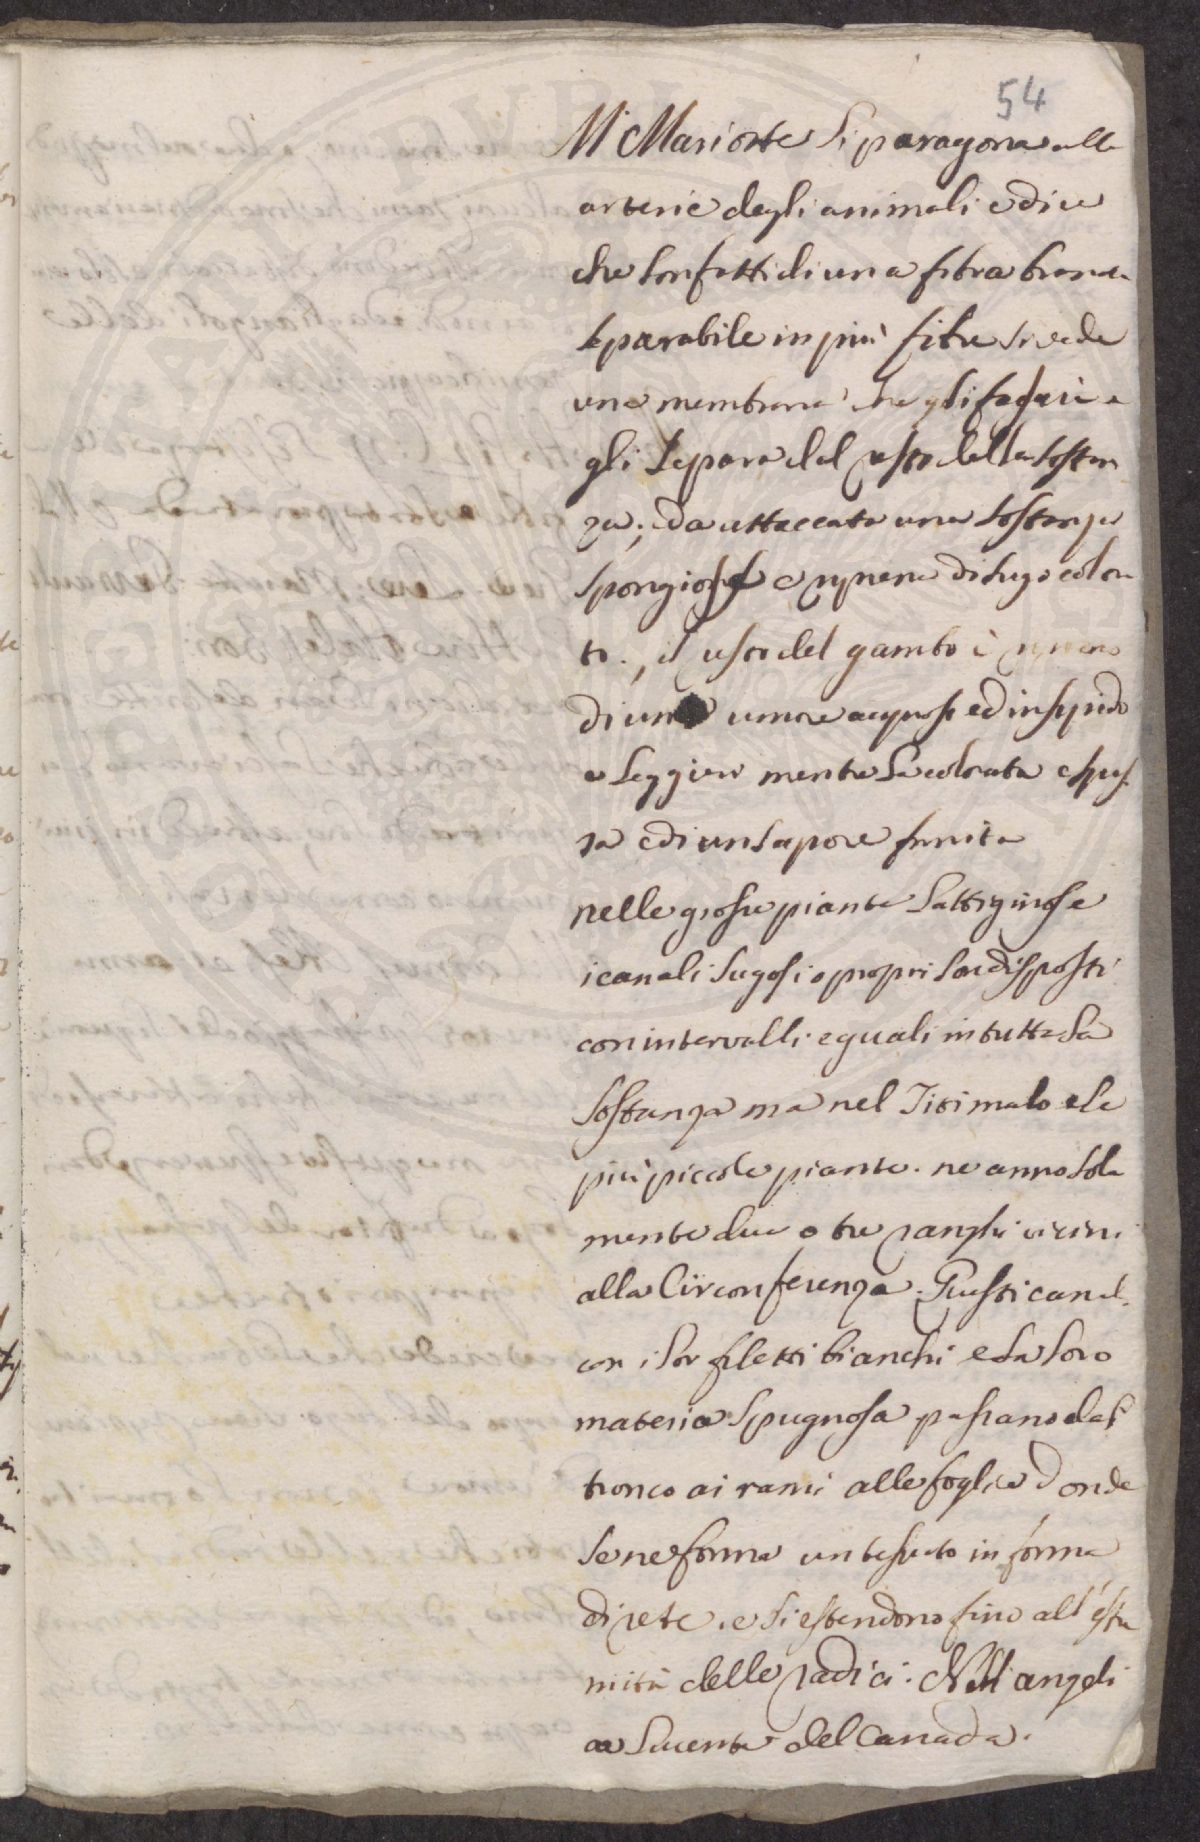 54
M Mariotte si paragona alle
arterie degli animali e dice
che son fatti di una fibra
separabile in più fibre si vede
una membrana che gli fascia e
gli separa dal resto della sostan
za, ed a attaccata una sostanza
spongiosa e ripiena di sugo colora
to., il resto del gambo è ripieno
di un umore acquoso ed insipido
e leggiero mentre la colorata
ed un sapore
nelle grosse piante lattiginose
i canali sugosi o propri son disposti
con intervalli eguali in tutta la
sostanza ma nel Titimalo e le
più piccole piante. ne anno sola
mente due o tre ranghi vicini
alla Circonferenza. Questi canal.
con i lor filetti bianchi e la loro
materia spugnosa passano dal
tronco ai rami alle foglie donde
se ne forma un tessuto in forma
di rete. e si estendono fino all' estre
mità delle radici. Nell angeli
ca lucente del Canada.